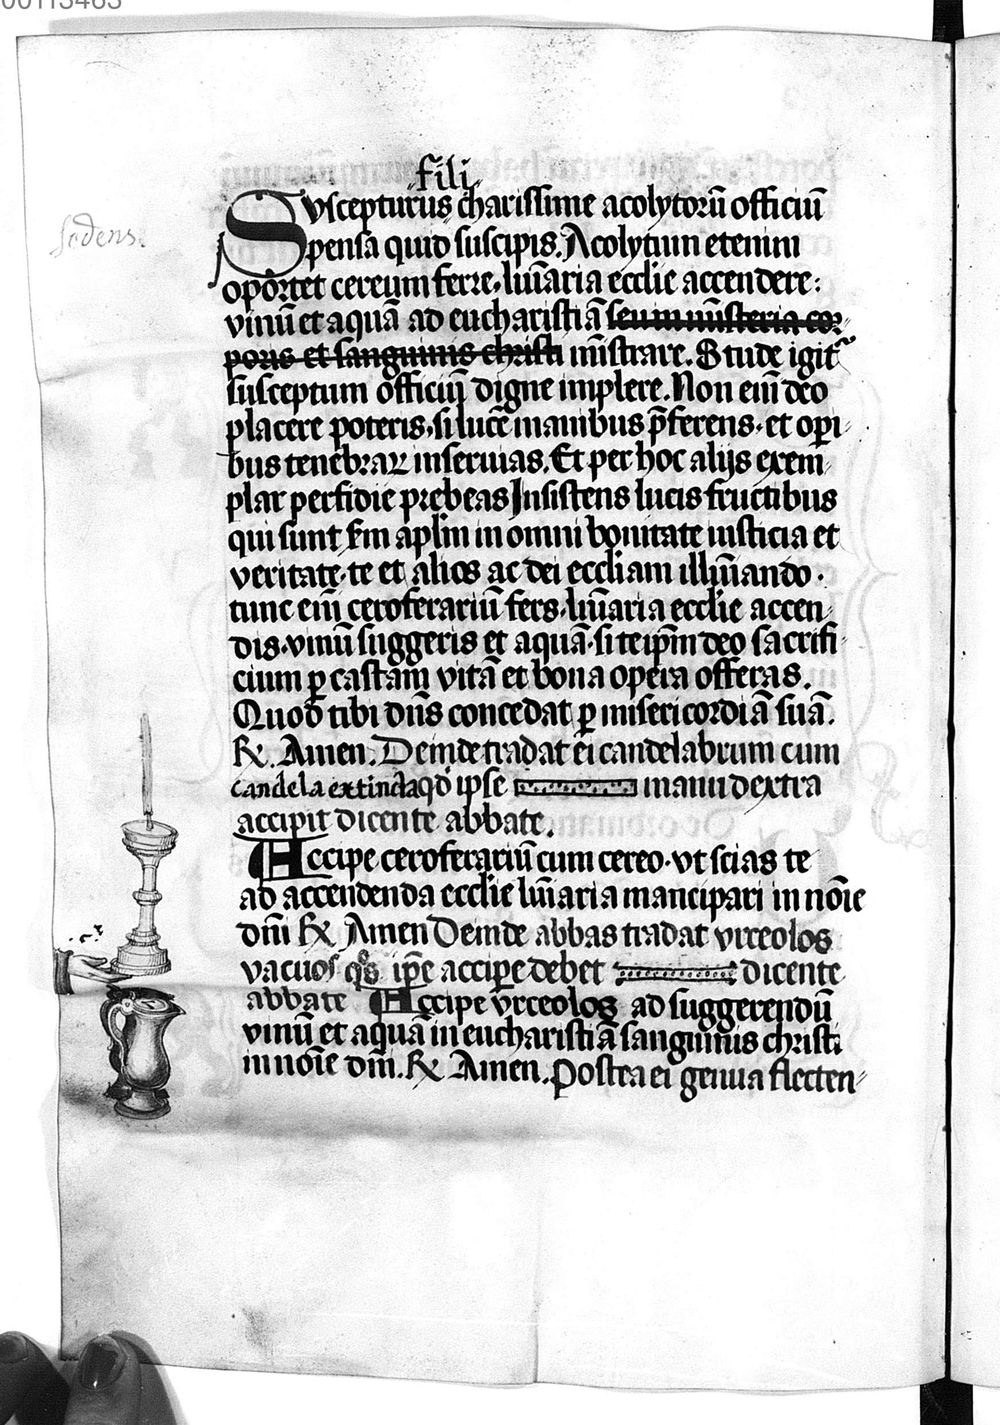 00113463
fili
Suscepturus charissime acolytorū officiū
sedens.
pensa quid suscipis. Acolytum etenim
oportet cereum ferre, lūinaria ecclie accendere:
vinū et aquā ad eucharistiā seu in mīsteria cor-
poris et sanguinis christi mīstrare. Stude igitr
susceptum officiū digne implere. Non eīm deo
placere poteris, si lucē manibus p̄ferens, et opi-
bus tenebraꝝ inseruias. Et per hoc alijs exem-
plar perfidie prebeas Insistens lucis fructibus
qui sunt scdm aplm in omni bonitate iusticia et
veritate, te et alios ac dei eccliam illūinando.
tunc eīm ceroferariū fers, lūinaria ecclie accen-
dis, vinū suggeris et aquā, si teip̄m deo sacrifi-
cium p castam vitā et bona opera offeras.
Quod tibi dn̄s concedat p misericordiā suā.
℞. Amen. Deinde tradat ei candelabrum cum
candela extincta qd̄ ipse manu dextra
accipit dicente abbate.
Accipe ceroferariū cum cereo, vt scias te
ad accendenda ecclie lūinaria mancipari in noīe
dn̄i ℞ Amen Deinde abbas tradat vrceolos
vacuos qos ip̄e accipe debet dicente
abbate Accipe vrceolos ad suggerendū
vinū et aquā in eucharistiā sanguinis christi
in noīe dn̄i. ℞ Amen. Postea ei genua flecten-